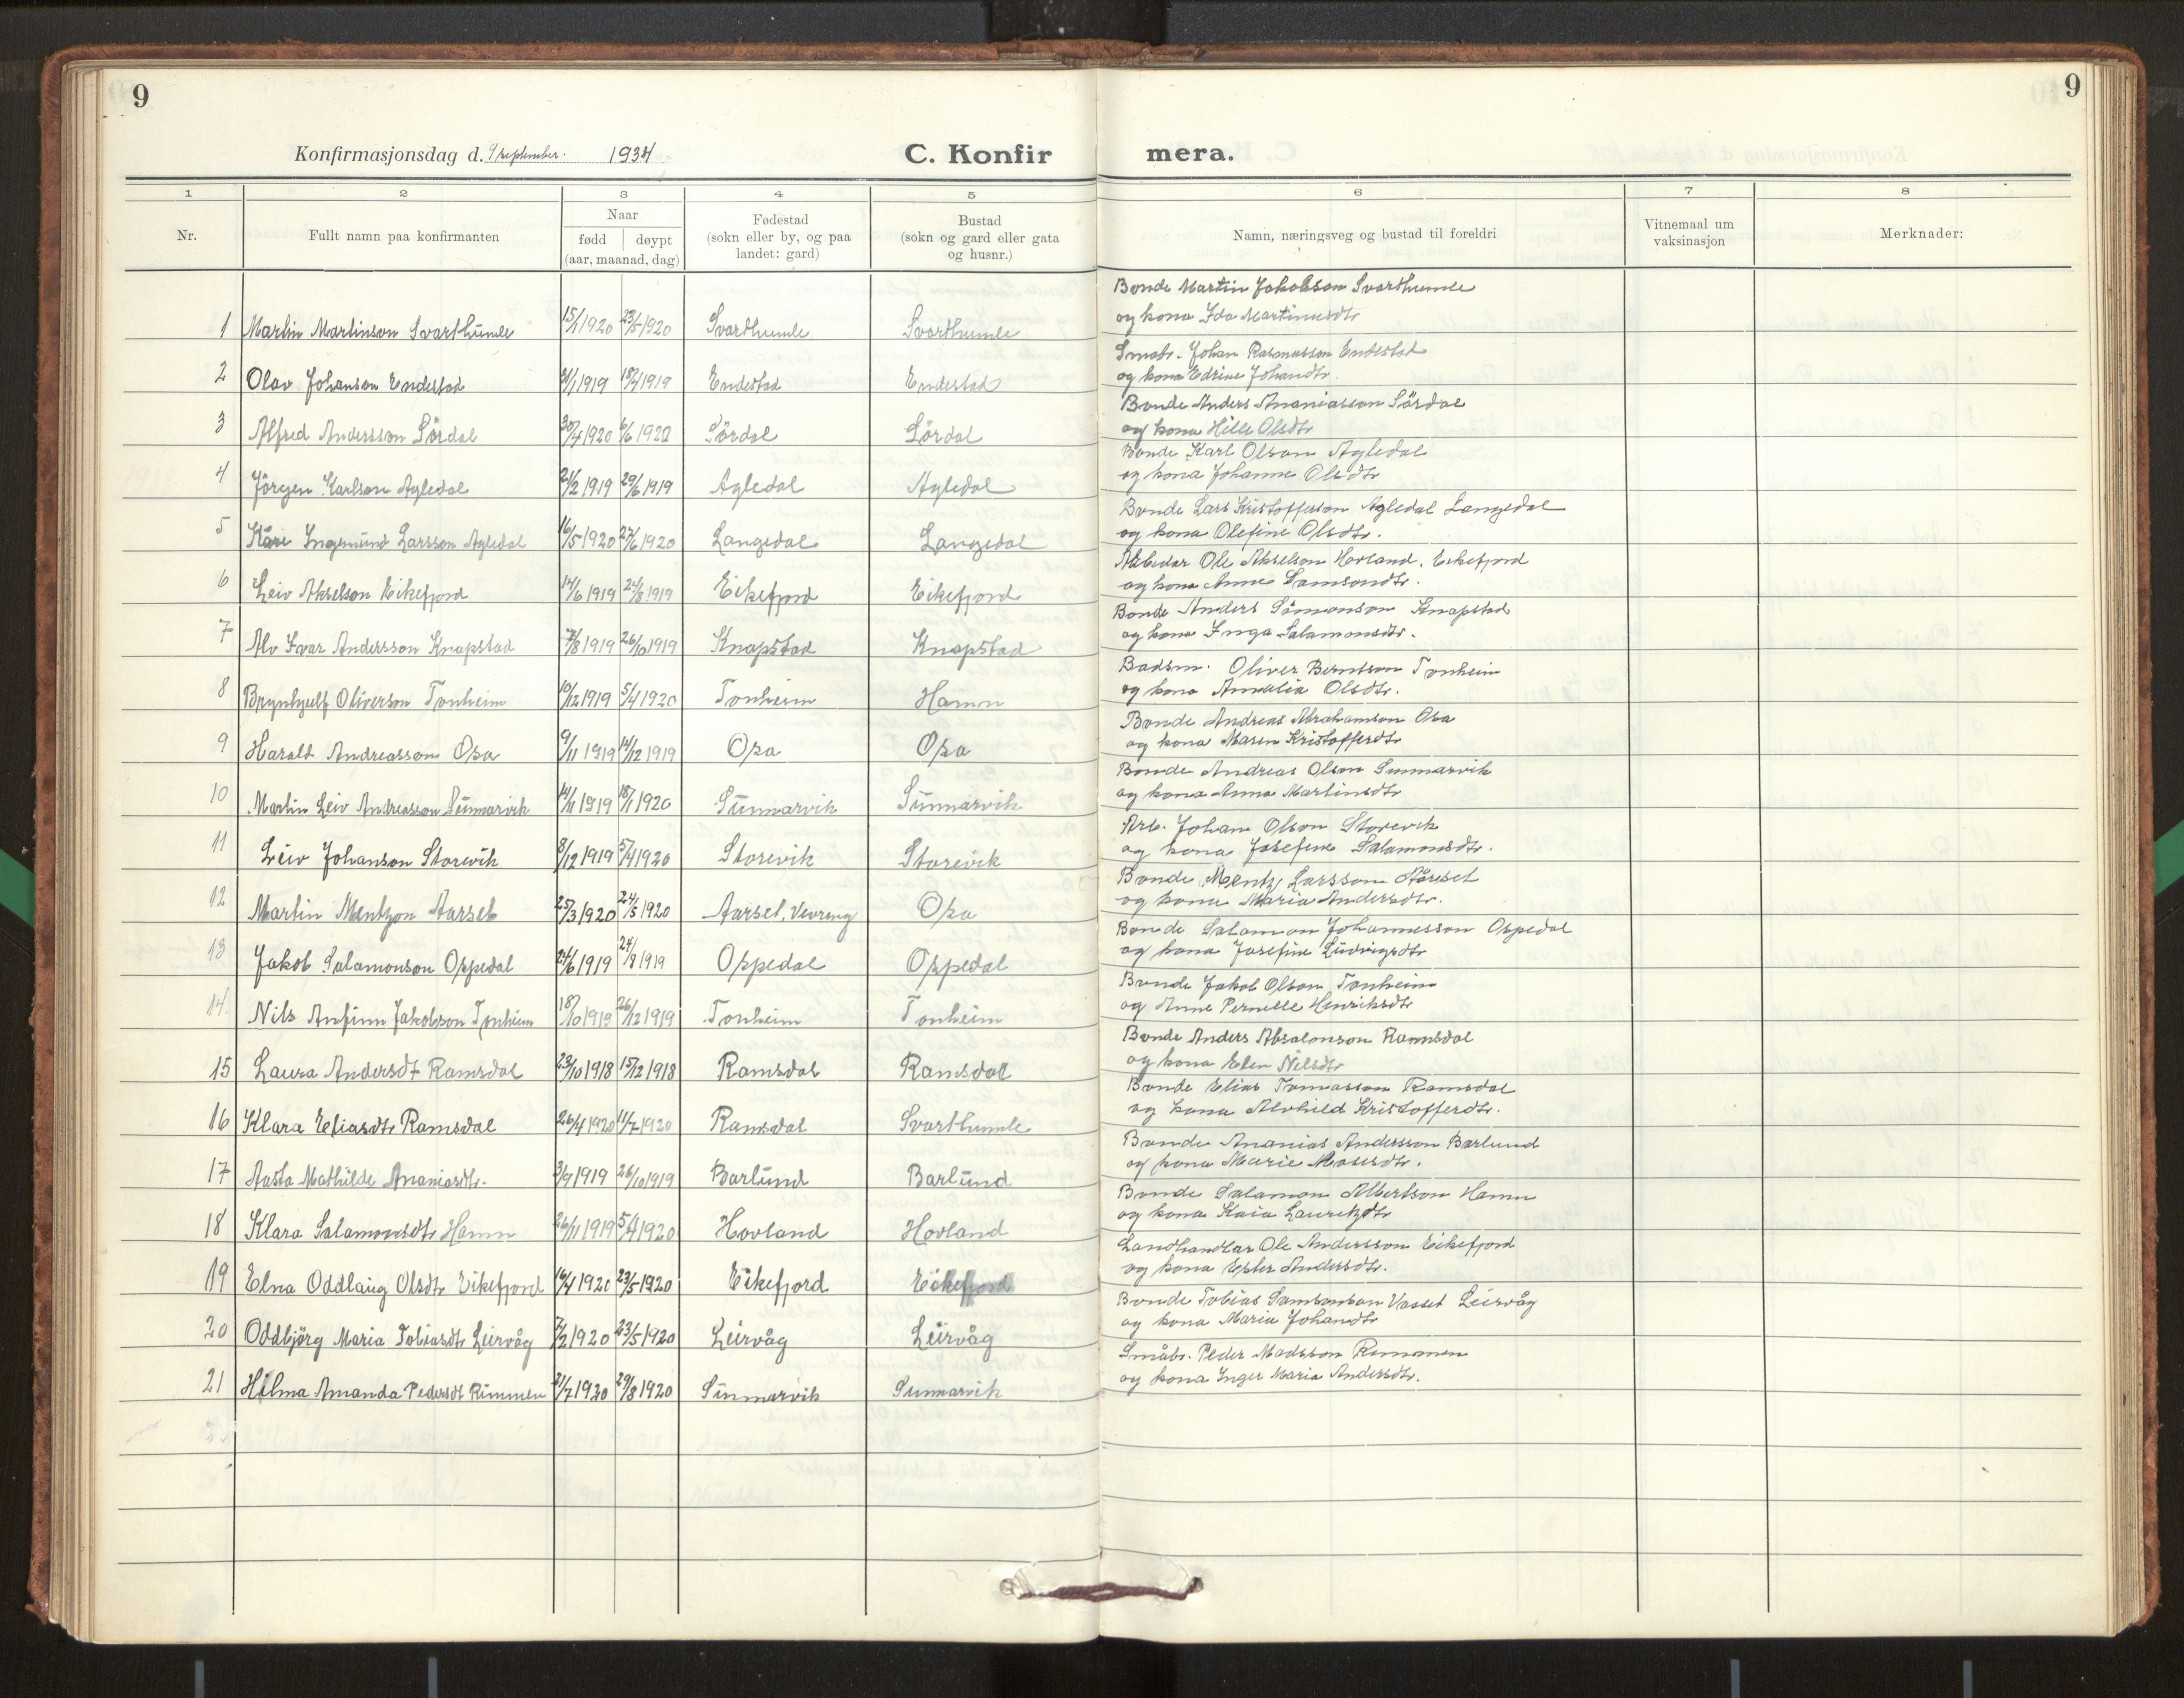 9
9
Konfirmasjonsdag d. 9 september. 1934
C. Konfirmera.
1 2 3 4 5 6 7 8
Nr.
Fullt namn paa konfirmanten
Naar
fødd | døypt
(aar, maanad, dag)
Fødestad
(sokn eller by, og paa
landet: gard)
Bustad
(sokn og gard eller gata
og husnr.)
Namn, næringsveg og bustad til foreldri
Vitnemaal um
vaksinasjon
Merknader:
1 Martin Martinson Svarthumle 15/1 1920 23/5 1920 Svarthumle Svarthumle
Bonde Martin Jakobson Svarthumle
og kona Ida Martinusdtr
2 Olav Johanson Endestad 1919 18/4 1919 Endestad Endestad
Småbr. Johan Rasmusson Endestad
og kona Edrine Johandtr.
3 Alfred Andersson Sördal 30/4 1920 6/6 1920 Sördal Sördal
Bonde Anders Ananiasson Sördal
og kona Hille Olsdtr
4 Jörgen Karlson Agledal 21/2 1919 29/6 1919 Agledal Agledal
Bonde Karl Olson Agledal
og kona Johanne Olsdtr
5 Kåre Ingemund Larsson Agledal 16/5 1920 27/6 1920 Langedal Langedal
Bonde Lars Kristofferson Agledal Langedal
og kona Olefine Olsdtr.
6 Leiv Akselson Eikefjord 14/6 1919 24/8 1919 Eikefjord Eikefjord
Arbeidar Ole Akselson Hovland, Eikefjord
og kona Anne Samsondtr.
7 Alv Ivar Andersson Knapstad 7/8 1919 26/10 1919 Knapstad Knapstad
Bonde Anders Simonson Knapstad
og kona Inga Salamonsdtr.
8 Brynhjulf Oliverson Tonheim 10/12 1919 5/4 1920 Tonheim Hamn
Badsm. Oliver Berntson Tonheim
og kona Amalia Olsdtr.
9 Harald Andreasson Osa 9/11 1919 14/12 1919 Osa Osa
Bonde Andreas Abrahamson Osa
og kona Maren Kristofferdtr
10 Martin Leiv Andreasson Sunnarvik 14/11 1919 18/1 1920 Sunnarvik Sunnarvik
Bonde Andreas Olson Sunnarvik
og kona Anna Martinsdtr
11 Leiv Johanson Storevik 8/12 1919 5/4 1920 Storevik Storevik
Arb. Johan Olson Storevik
og kona Josefine Salamonsdtr.
12 Martin Mentzon Aarset 25/3 1920 24/5 1920 Aarset, Vevring Osa
Bonde Mentz Larsson Aarset
og kona Maria Andersdtr.
13 Jakob Salamonson Ospedal 24/6 1919 24/8 1919 Ospedal Ospedal
Bonde Salamon Johannesson Ospedal
og kona Josefine Ludvigsdtr
14 Nils Anfinn Jakobson Tonheim 18/10 1919 26/12 1919 Tonheim Tonheim
Bonde Jakob Olson Tonheim
og Anne Pernille Henriksdtr
15 Laura Andersdt Ramsdal 23/10 1918 15/12 1918 Ramsdal Ramsdal
Bonde Anders Absalonson Ramsdal
og kona Elen Nilsdtr
16 Klara Eliasdtr Ramsdal 26/4 1920 11/7 1920 Ramsdal Svarthumle
Bonde Elias Tomasson Ramsdal
og kona Alvhild Kristofferdtr.
17 Aasta Mathilde Ananiasdtr. 3/9 1919 26/10 1919 Barlund Barlund
Bonde Ananias Andersson Barlund
og kona Marie Mosesdtr.
18 Klara Salamonsdtr Hamn 26/11 1919 5/4 1920 Hovland Hovland
Bonde Salamon Albertson Hamn
og kona Kaia Lauritzdtr
19 Elna Oddlaug Olsdtr Eikefjord 16/4 1920 23/5 1920 Eikefjord Eikefjord
Landhandlar Ole Andersson Eikefjord
og kona Ester Andersdtr.
20 Oddbjörg Maria Tobiasdtr Leirvåg 7/2 1920 23/5 1920 Leirvåg Leirvåg
Bonde Tobias Samsonson Vasset Leirvåg
og kona Maria Johandtr
21 Hilma Amanda Pedersdt Rimmen 21/7 1920 29/8 1920 Sunnarvik Sunnarvik
Småbr. Peder Madsson
og kona Inger Maria Andersdtr.